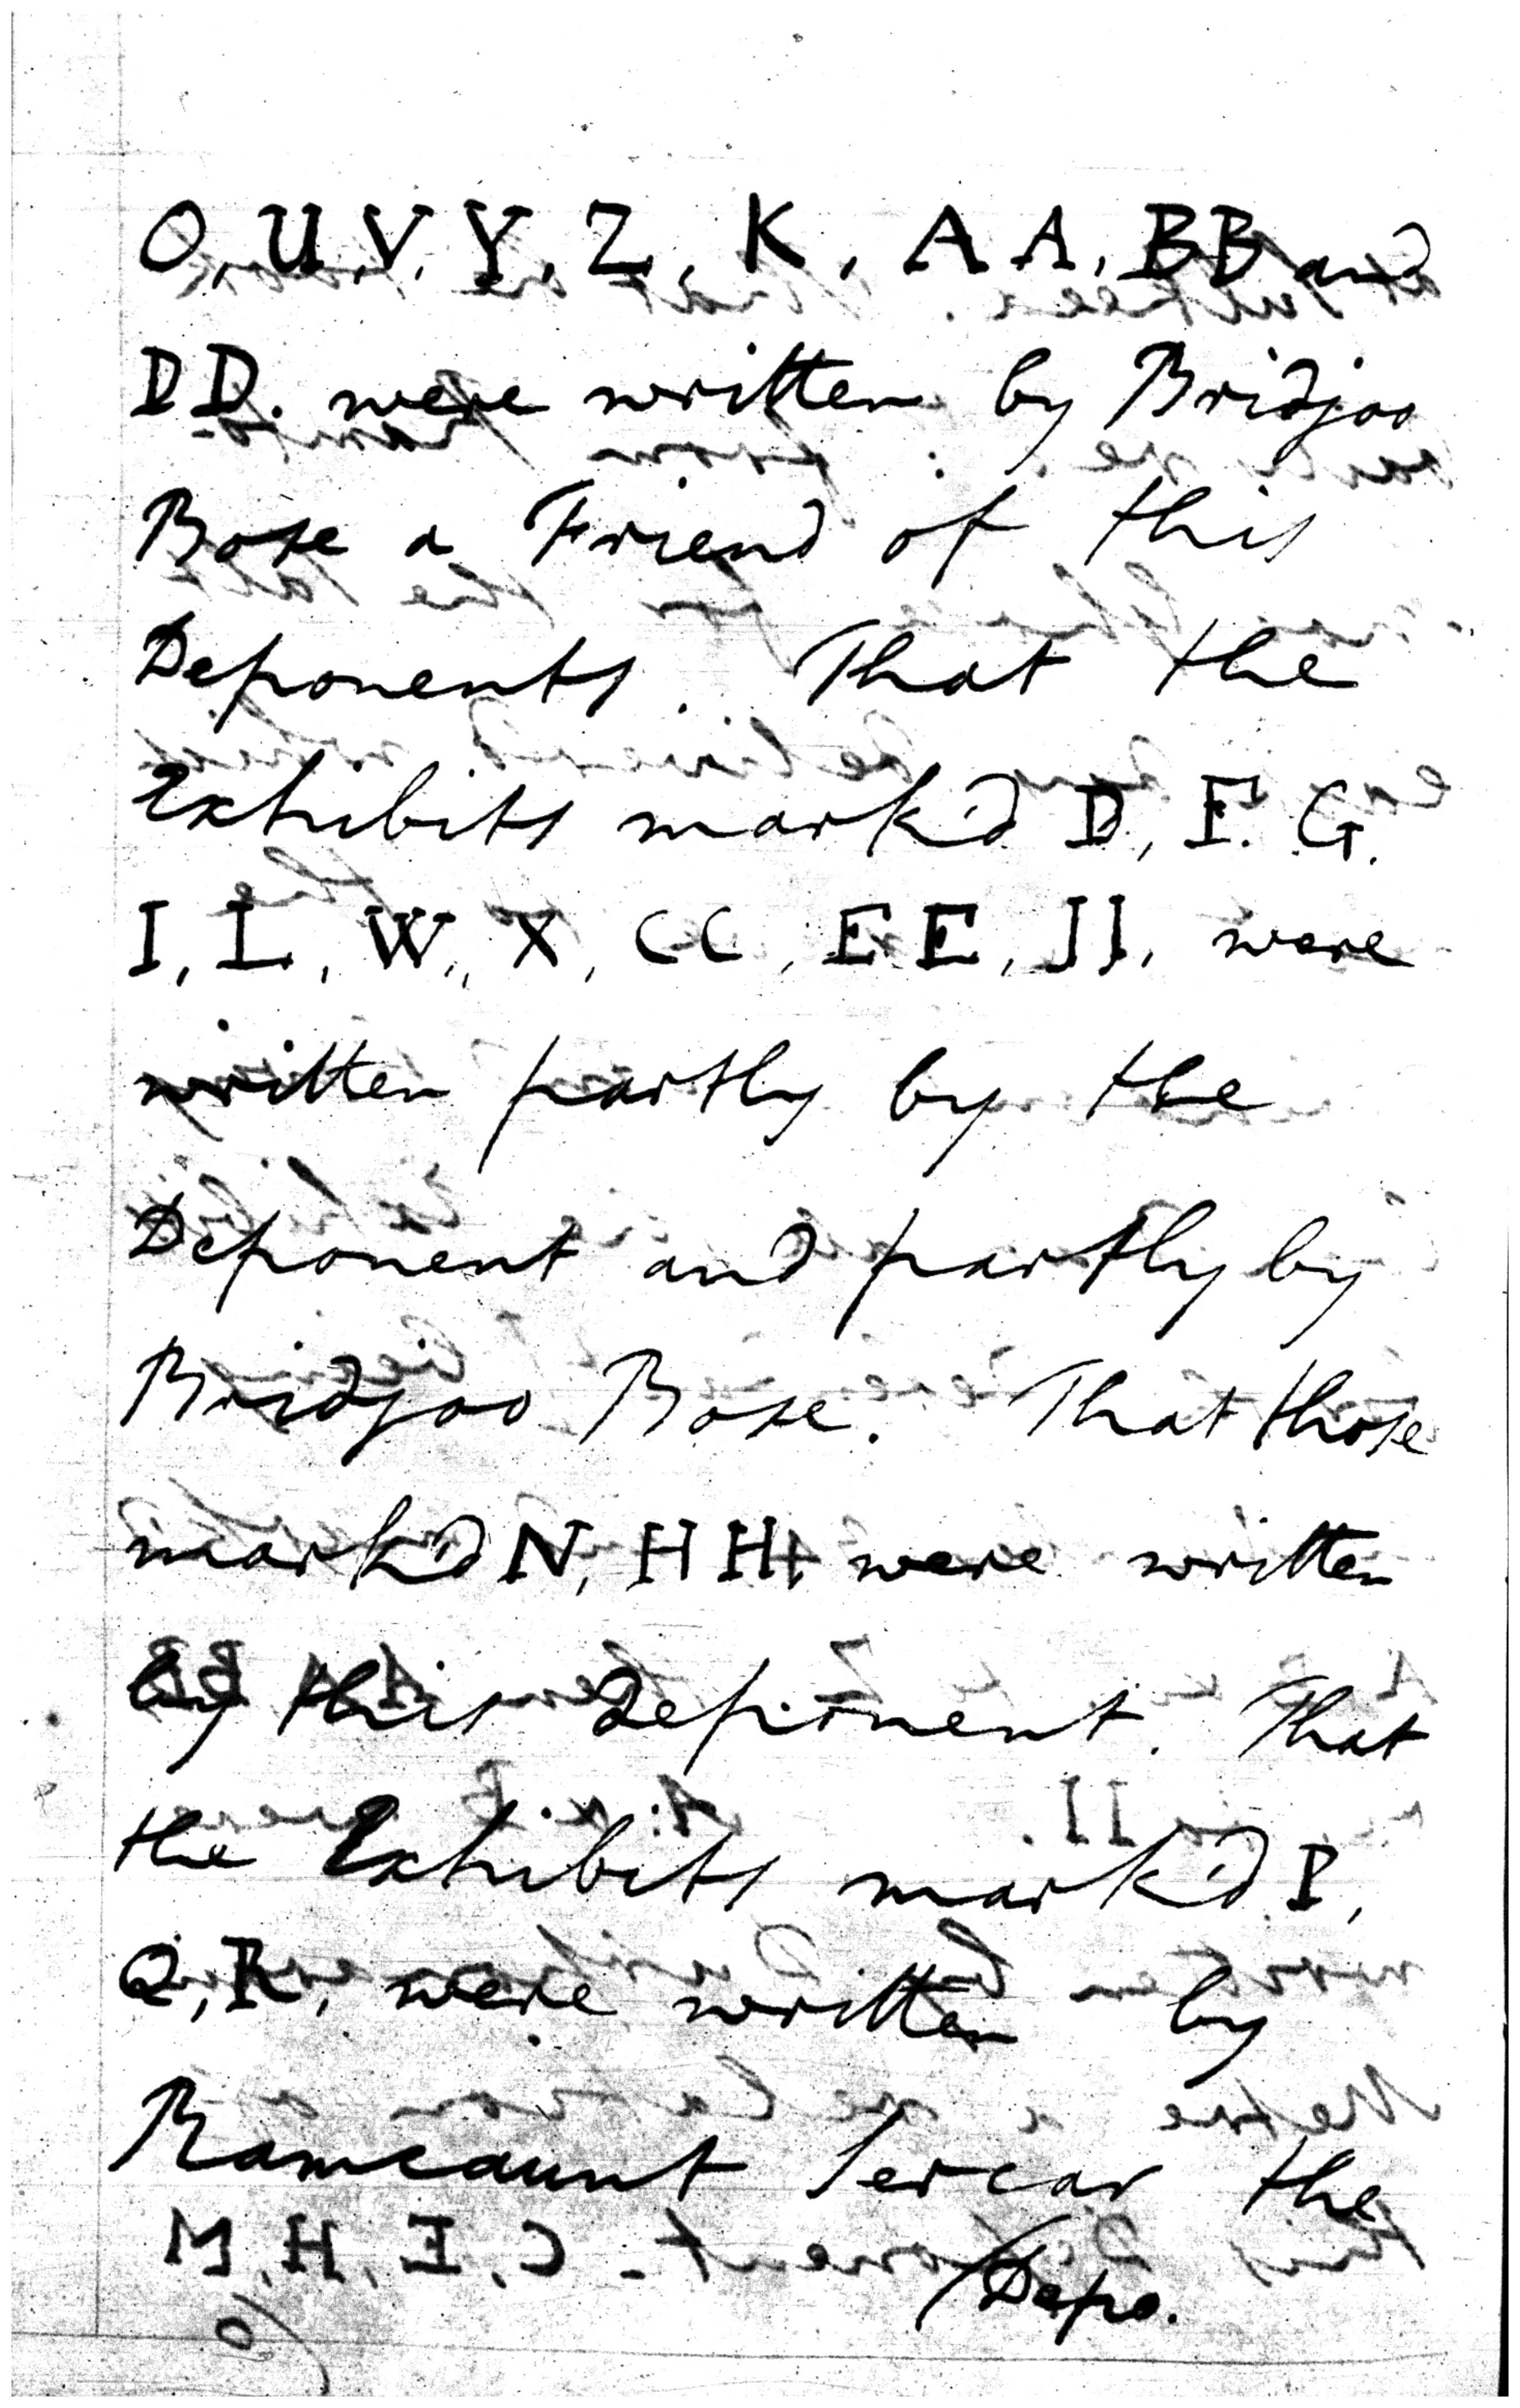 O, U, V, Y, Z, K, A A, BB and
DD. were written by Bridjoo
Bose a Friend of this
Deponents. That the
Exhibits mark'd D, F. G.
I, L, W, X, CC, E E, JJ, were
written partly by the
Deponent and partly by
Bridjoo Bose. That those
mark'd N, H H, were written
by this Deponent. That
the Exhibits mark'd P,
Q, R, were written by
Ramcaunt Sercar the
/Depo.